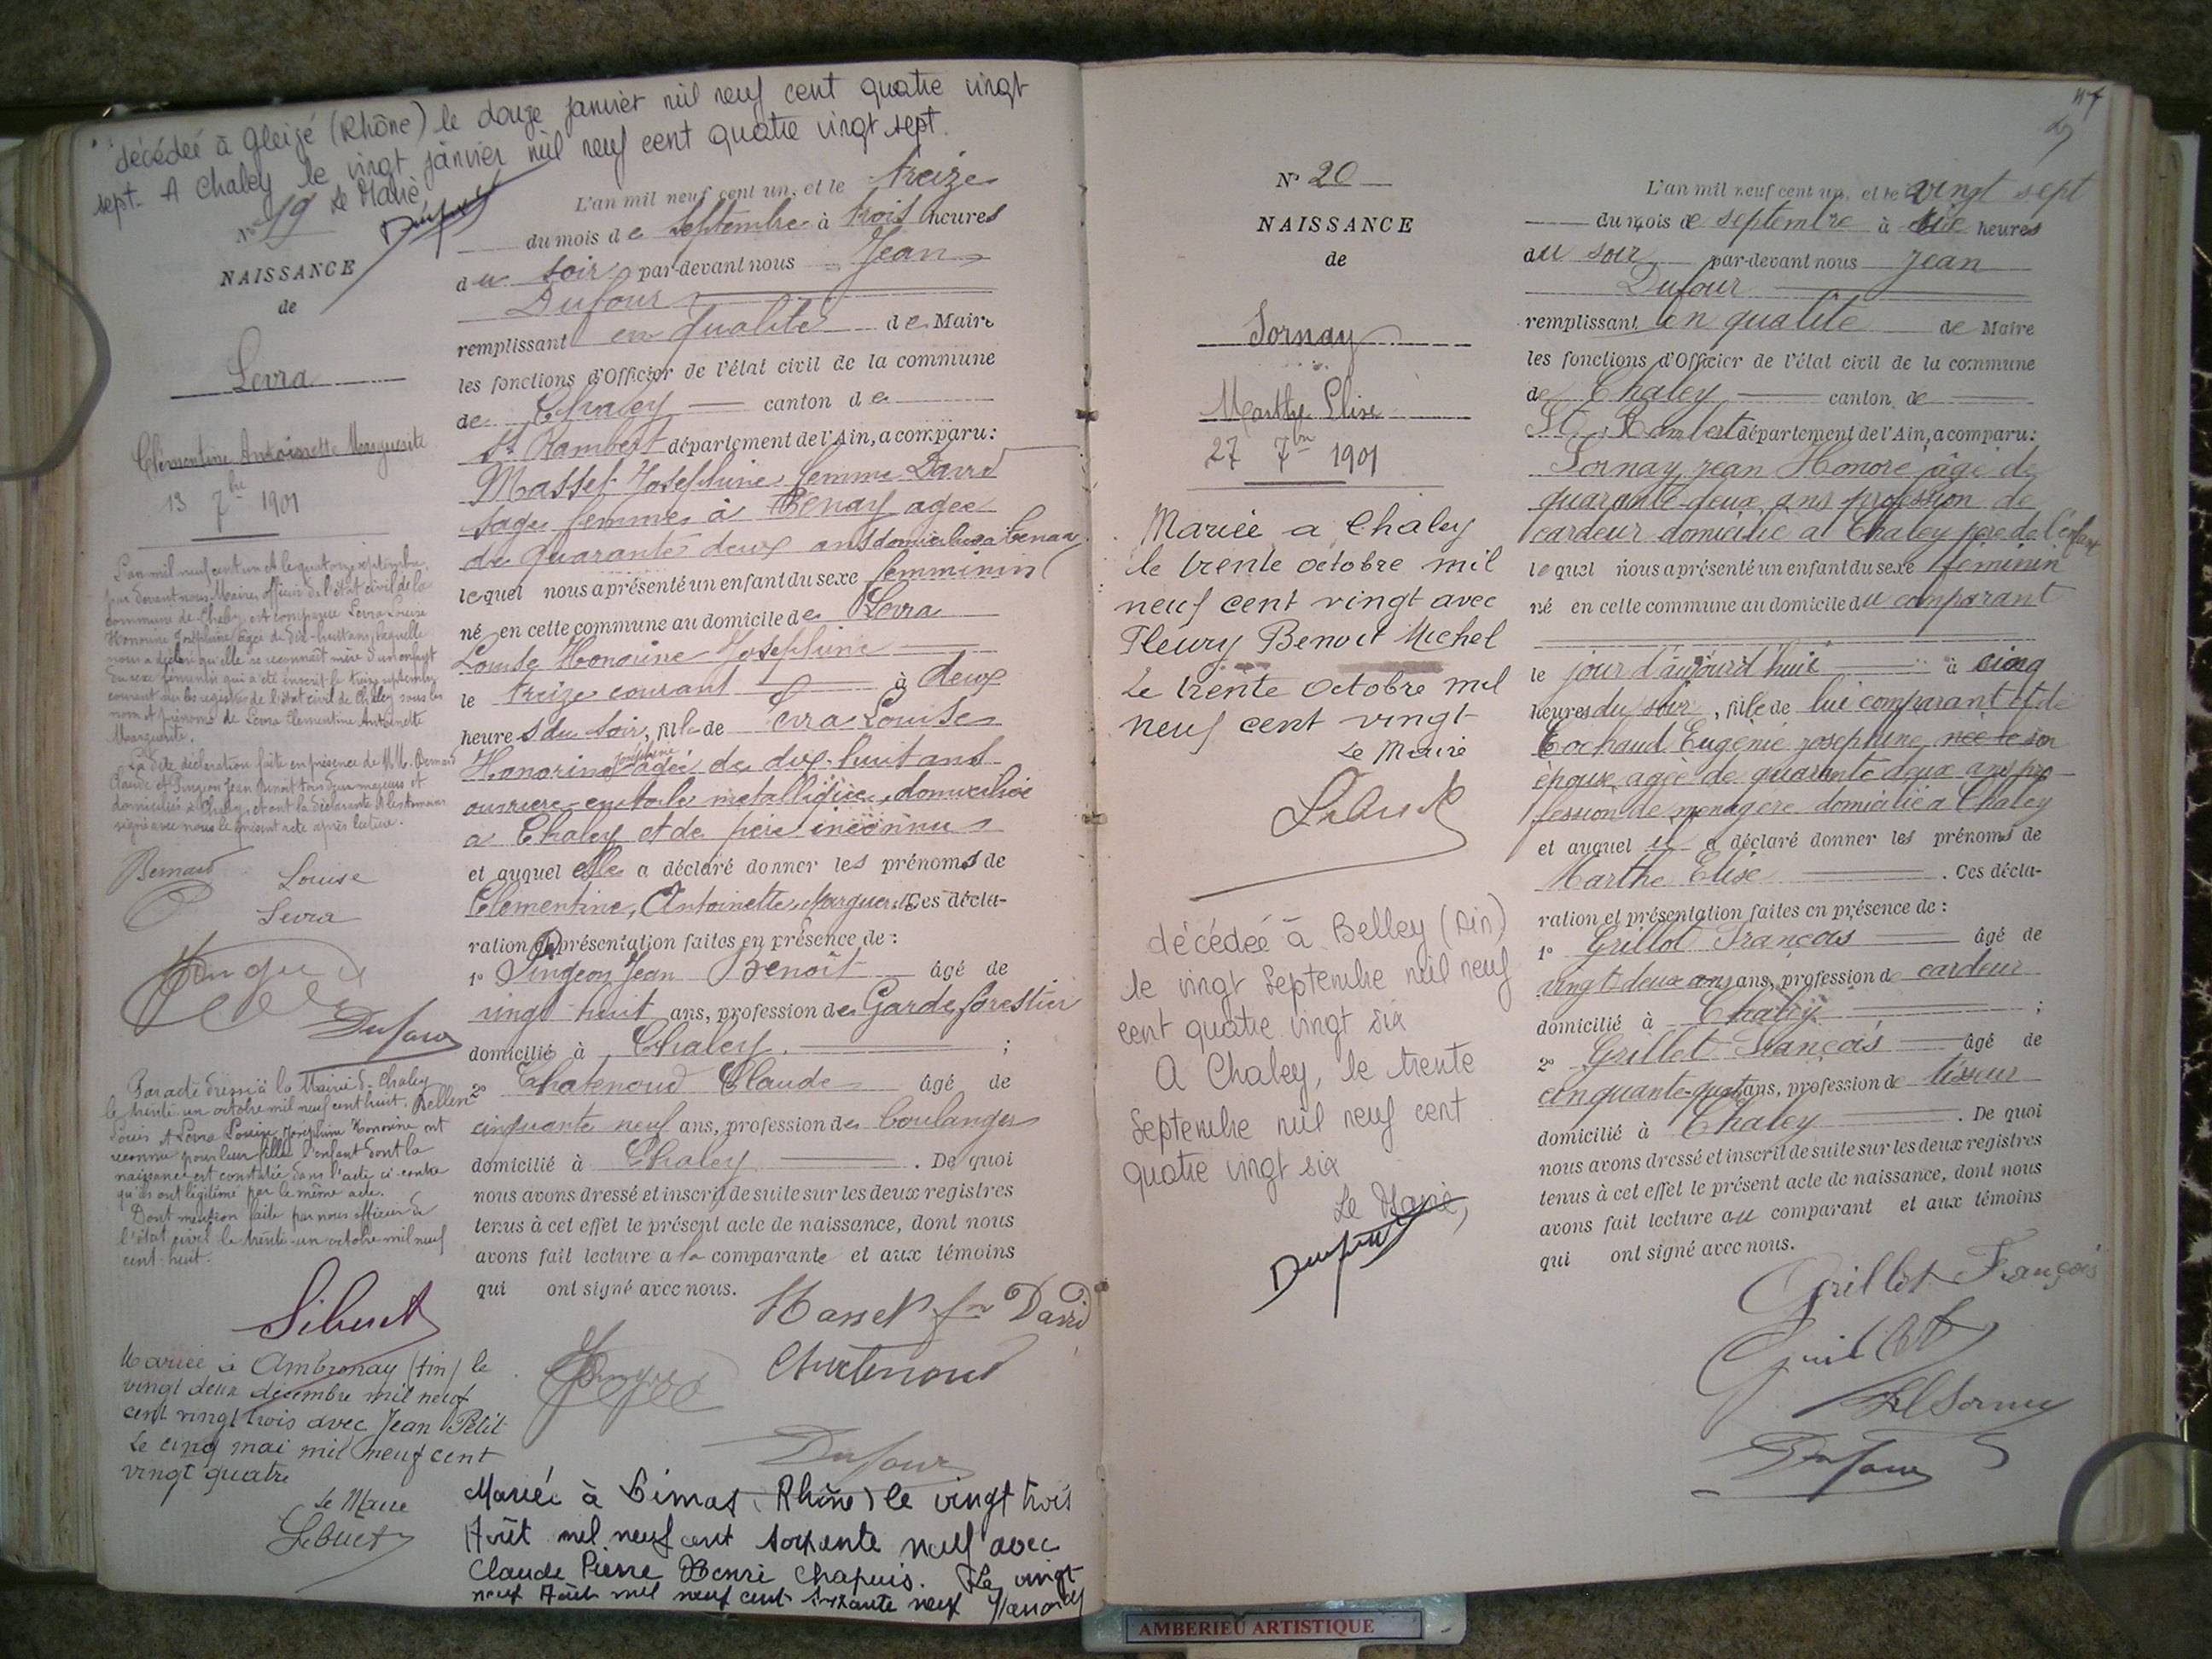 décédée à Gleizé (Rhône) le douze janvier mil neuf cent quatre vingt
sept. A Chaley le vingt janvier mil neuf cent quatre vingt sept.
Le Maire
N° 19
NAISSANCE
de
Levra
Clémentine Antoinette Marguerite
13 7bre 1901
L'an mil neuf cent un et le quatorze septembre,
par devant nous Maire, officier de l'état civil de la
commune de Chaley, est comparue Levra Louise
Honorine Joséphine âgée de dix-huit ans, laquelle
nous a déclaré qu'elle se reconnaît mère d'un enfant
du sexe féminin qui a été inscrit le treize septembre
courant sur les registres de l'état civil de Chaley sous les
nom et prénoms de Levra Clémentine Antoinette
Marguerite.
La dite déclaration faite en présence de MM. Bernard
Claude et Pingeon Jean Benoit tous deux majeurs et
domiciliés à Chaley, et ont la déclarante et les témoins
signé avec nous le présent acte après lecture.
Bernard
Louise
Levra
Dufour
Par acte dressé à la Mairie de Chaley
le trente un octobre mil neuf cent huit, Bellen
Louis et Levra Louise Joséphine Honorine ont
reconnu pour leur fille l'enfant dont la
naissance est constatée dans l'acte ci-contre
qu'ils ont légitimé par le même acte.
Dont mention faite par nous officier de
l'état civil le trente-un octobre mil neuf
cent-huit.
Sibuet
Mariée à Ambronay (Ain) le
vingt deux décembre mil neuf
cent vingt trois avec Jean Petit
Le cinq mai mil neuf cent
vingt quatre
Le Maire
Sibuet
L'an mil neuf cent un, et le treize
du mois de Septembre à trois heures
du soir par-devant nous Jean
Dufour
remplissant en qualité de Maire
les fonctions d'Officier de l'état civil de la commune
de Chaley canton de
St Rambert département de l'Ain, a comparu:
Masset Joséphine femme David
sage femme à Tenay agée
de quarante deux ans domiciliée à Tenay
lequel nous a présenté un enfant du sexe femminin
né en cette commune au domicile de Levra
Louise Honorine Joséphine
le treize courant à deux
heures du soir, fille de Levra Louise
Honorine Joséphine agée de dix-huit ans
ouvrière en toile métallique, domiciliée
a Chaley et de père inconnu
et auquel elle a déclaré donner les prénoms de
Clémentine, Antoinette, Marguerite Ces décla-
ration et présentation faites en présence de:
1° Pingeon Jean Benoît âgé de
vingt huit ans, profession de Garde forestier
domicilié à Chaley ;
2° Chatenoud Claude âgé de
cinquante neuf ans, profession de boulanger
domicilié à Chaley . De quoi
nous avons dressé et inscrit de suite sur les deux registres
tenus à cet effet le présent acte de naissance, dont nous
avons fait lecture a la comparante et aux témoins
qui ont signé avec nous.
Masset fe David
Chatenoud
Dufour
Mariée à Limas (Rhône) le vingt trois
Août mil neuf cent soixante neuf avec
Claude Pierre Henri Chapuis. Le vingt
neuf Août mil neuf cent soixante neuf
N° 20
NAISSANCE
de
Sornay
Marthe Elise
27 7bre 1901
Mariée a Chaley
le trente octobre mil
neuf cent vingt avec
Fleury Benoit Michel
Le trente octobre mil
neuf cent vingt
Le Maire
Sibuet
décédée à Belley (Ain)
le vingt Septembre mil neuf
cent quatre vingt six
A Chaley, le trente
Septembre mil neuf cent
quatre vingt six
Le Maire,
L'an mil neuf cent un, et le vingt sept
du mois de septembre à six heures
du soir par-devant nous Jean
Dufour
remplissant en qualité de Maire
les fonctions d'Officier de l'état civil de la commune
de Chaley canton de
St Rambert département de l'Ain, a comparu:
Sornay jean Honoré âgé de
quarante-deux ans profession de
cardeur domicilié a Chaley père de l'enfant
lequel nous a présenté un enfant du sexe féminin
né en cette commune au domicile du comparant
le jour d'aujourd'huit à cinq
heures du soir, fille de lui comparant et de
Cochaud Eugénie josephine née le son
épouse agée de quarante deux ans pro
fession de menagère domicilié a Chaley
et auquel il a déclaré donner les prénoms de
Marthe Elise . Ces décla-
ration et présentation faites en présence de:
1° Grillot François âgé de
vingt-deux ans ans, profession de cardeur
domicilié à Chaley ;
2° Grillet François âgé de
cinquante-quatre ans, profession de tisseur
domicilié à Chaley . De quoi
nous avons dressé et inscrit de suite sur les deux registres
tenus à cet effet le présent acte de naissance, dont nous
avons fait lecture au comparant et aux témoins
qui ont signé avec nous.
Grillet François
Dufour
AMBERIEU ARTISTIQUE